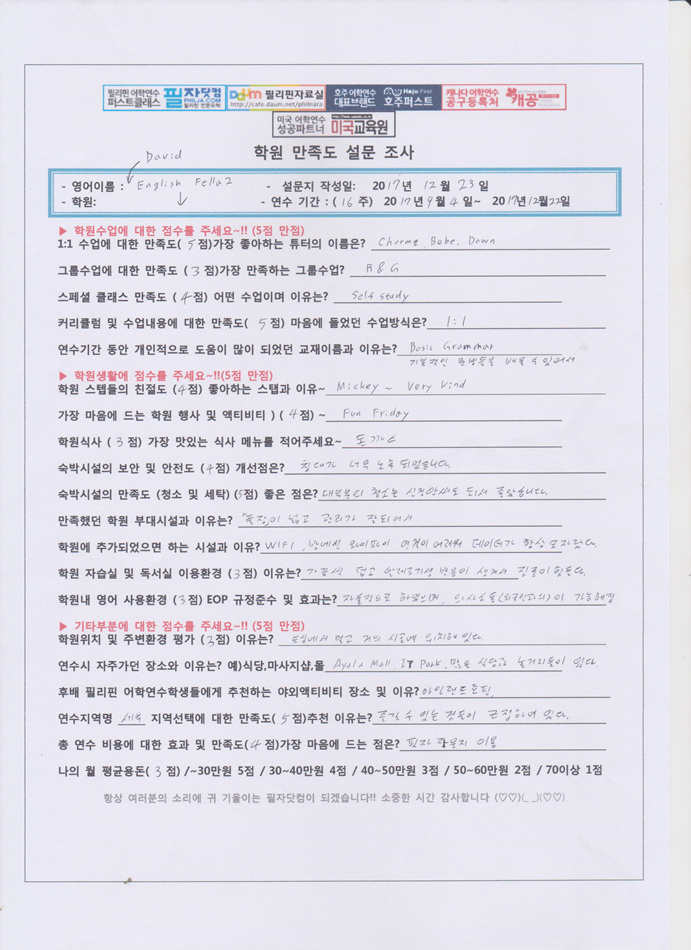 필리핀 어학연수 퍼스트클래스 필자닷컴 PHILJA.COM 필리핀 전문유학 Daum 필리핀자료실 http://cafe.daum.net/philnara 호주 어학연수 대표브랜드 Hoju First 호주퍼스트 캐나다 어학연수 공구등록처 캐공
미국 어학연수 성공파트너 미국교육원
학원 만족도 설문 조사
David
- 영어이름 : English Fella2 - 설문지 작성일: 2017년 12월 23일
- 학원: - 연수 기간 : (16 주) 2017년 9월 4일~ 2017년12월22일
▶ 학원수업에 대한 점수를 주세요~!! (5점 만점)
1:1 수업에 대한 만족도( 5점)가장 좋아하는 튜터의 이름은? Charme, Babe, Dawn
그룹수업에 대한 만족도 ( 3점)가장 만족하는 그룹수업? R&G
스페셜 클래스 만족도 ( 4점) 어떤 수업이며 이유는? Self study
커리큘럼 및 수업내용에 대한 만족도( 5점) 마음에 들었던 수업방식은? 1:1
연수기간 동안 개인적으로 도움이 많이 되었던 교재이름과 이유는? Basic Grammar
기본적인 문법들을 배울 수 있어서
▶ 학원생활에 점수를 주세요~!!(5점 만점)
학원 스텝들의 친절도 (4점) 좋아하는 스탭과 이유~ Mickey ~ Very kind
가장 마음에 드는 학원 행사 및 액티비티 ) ( 4점) ~ Fun Friday
학원식사 ( 3점) 가장 맛있는 식사 메뉴를 적어주세요~ 돈까스
숙박시설의 보안 및 안전도 (4점) 개선점은? 침대가 너무 노후 되었습니다.
숙박시설의 만족도 (청소 및 세탁) (5점) 좋은 점은? 대부분의 청소는 신경안써도 되서 좋았습니다.
만족했던 학원 부대시설과 이유는? 넓고 관리가 잘되어서
학원에 추가되었으면 하는 시설과 이유? WIFI, 방에선 와이파이 연결이 어려워 데이터가 항상 모자랐다.
학원 자습실 및 독서실 이용환경 (3점) 이유는? 좁고 생겨서 집중이 힘든다.
학원내 영어 사용환경 (3점) EOP 규정준수 및 효과는? 자율적으로 하였으며, 의사소통(외국인과의)이 가능해짐
▶ 기타부분에 대한 점수를 주세요~!! (5점 만점)
학원위치 및 주변환경 평가 (3점) 이유는? 도심에서 멀고 거의 시골에 위치해 있다.
연수시 자주가던 장소와 이유는? 예)식당,마사지샵,몰 Ayala Mall, IT Park, 많은 식당과 놀거리들이 있다
후배 필리핀 어학연수학생들에게 추천하는 야외액티비티 장소 및 이유? 아일랜드호핑,
연수지역명 세부 지역선택에 대한 만족도( 5점)추천 이유는? 즐길 수 있는 것들이 근접하여 있다.
총 연수 비용에 대한 효과 및 만족도(4점)가장 마음에 드는 점은? 필자 이용
나의 월 평균용돈( 3점) /~30만원 5점 / 30~40만원 4점 / 40~50만원 3점 / 50~60만원 2점 / 70이상 1점
항상 여러분의 소리에 귀 기울이는 필자닷컴이 되겠습니다!! 소중한 시간 감사합니다 (♡♡)(_ _)(♡♡)